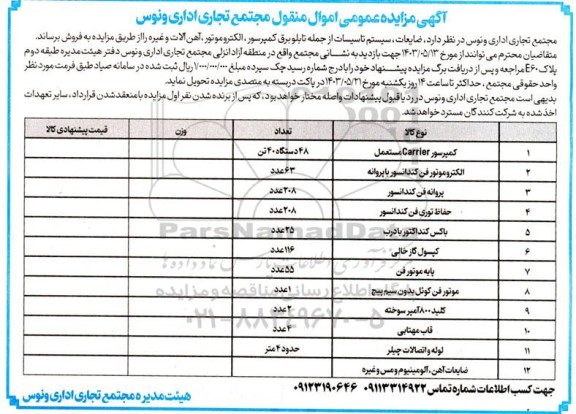 آگهی مزایده عمومی اموال منقول مجتمع تجاری اداری ونوس
مجتمع تجاری اداری ونوس در نظر دارد، ضایعات، سیستم تاسیسات از جمله تابلو برق کمپرسور، الکتروموتور، آهن آلات و غیره را از طریق مزایده به فروش برساند.
متقاضیان محترم می توانند از مورخ ۱۴۰۳/۰۵/۱۳ جهت بازدید به نشانی مجتمع واقع در منطقه آزاد انزلی مجتمع تجاری اداری ونوس دفتر هیئت مدیره طبقه دوم
پلاک E۶۰ مراجعه و پس از دریافت برگ مزایده پیشنهاد خود را با درج شماره رسید چک سپرده مبلغ ۱/۰۰۰/۰۰۰/۰۰۰ ریال ثبت شده در سامانه صیاد طبق فرمت مورد نظر
واحد حقوقی مجتمع، حداکثر تا ساعت ۱۴ روز یکشنبه مورخ ۱۴۰۳/۰۵/۲۱ در پاکت دربسته به متصدی مزایده تحویل نماید.
بدیهی است مجتمع تجاری اداری ونوس در رد یا قبول پیشنهادات واصله مختار خواهد بود، که پس از برنده شدن نفر اول مزایده با منعقد شدن قرارداد، سایر تعهدات
اخذ شده به شرکت کنندگان مسترد خواهد شد.
نوع کالا تعداد وزن قیمت پیشنهادی کالا
۱ کمپرسور Carrier مستعمل ۴۸ دستگاه ۴۰ تن
۲ الکتروموتور فن کندانسور با پروانه ۶۳ عدد
۳ پروانه فن کندانسور ۲۰۸ عدد
۴ حفاظ توری فن کندانسور ۲۰۸ عدد
۵ باکس کنداکتور با درب ۲۵ عدد
۶ کپسول گاز خالی ۱۱۶ عدد
۷ پایه موتور فن ۵۵ عدد
۸ موتور فن کوئل بدون سیم پیچ ۱ عدد
۹ کلید ۸۰۰ آمپر سوخته ۲ عدد
۱۰ قاب مهتابی ۴ عدد
۱۱ لوله و اتصالات چیلر حدود ۴ متر
۱۲ ضایعات آهن، آلومینیوم و مس و غیره
جهت کسب اطلاعات شماره تماس ۰۹۱۱۳۳۱۴۹۲۲ ۰۹۱۲۳۱۹۰۶۴۶
هیئت مدیره مجتمع تجاری اداری ونوس
ParsNamadData
پایگاه اطلاع رسانی مناقصه و مزایده
۰۲۱-۸۸۳۴۹۶۷۰-۵